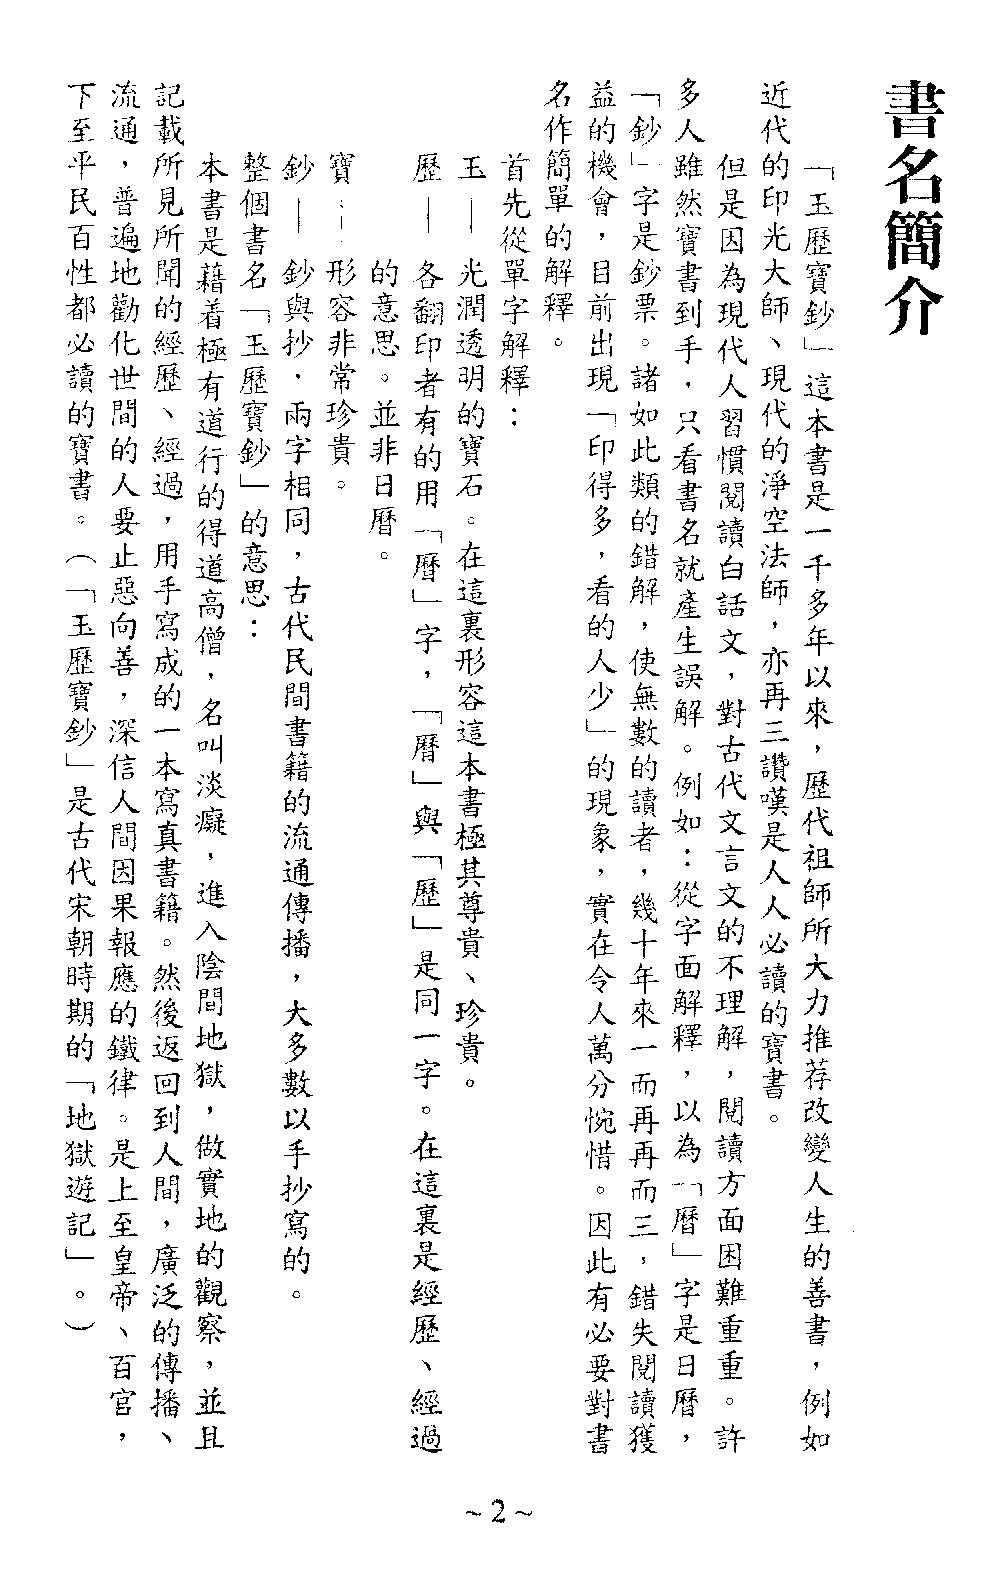 書名簡介
「玉歷寶鈔」這本書是一千多年以來，歷代祖師所大力推荐改變人生的善書，例如
近代的印光大師、現代的淨空法師，亦再三讚嘆是人人必讀的寶書。
但是因為現代人習慣閱讀白話文，對古代文言文的不理解，閱讀方面困難重重。許
多人雖然寶書到手，只看書名就產生誤解。例如：從字面解釋，以為「曆」字是日曆，
「鈔」字是鈔票。諸如此類的錯解，使無數的讀者，幾十年來一而再再而三，錯失閱讀獲
益的機會，目前出現「印得多，看的人少」的現象，實在令人萬分惋惜。因此有必要對書
名作簡單的解釋。
首先從單字解釋：
玉——光潤透明的寶石。在這裏形容這本書極其尊貴、珍貴。
歷——各翻印者有的用「曆」字，「曆」與「歷」是同一字。在這裏是經歷、經過
的意思。並非日曆。
寶——形容非常珍貴。
鈔——鈔與抄，兩字相同，古代民間書籍的流通傳播，大多數以手抄寫的。
整個書名「玉歷寶鈔」的意思：
本書是藉着極有道行的得道高僧，名叫淡癡，進入陰間地獄，做實地的觀察，並且
記載所見所聞的經歷、經過，用手寫成的一本寫真書籍。然後返回到人間，廣泛的傳播、
流通，普遍地勸化世間的人要止惡向善，深信人間因果報應的鐵律。是上至皇帝、百官，
下至平民百性都必讀的寶書。（「玉歷寶鈔」是古代宋朝時期的「地獄遊記」。）
~2~